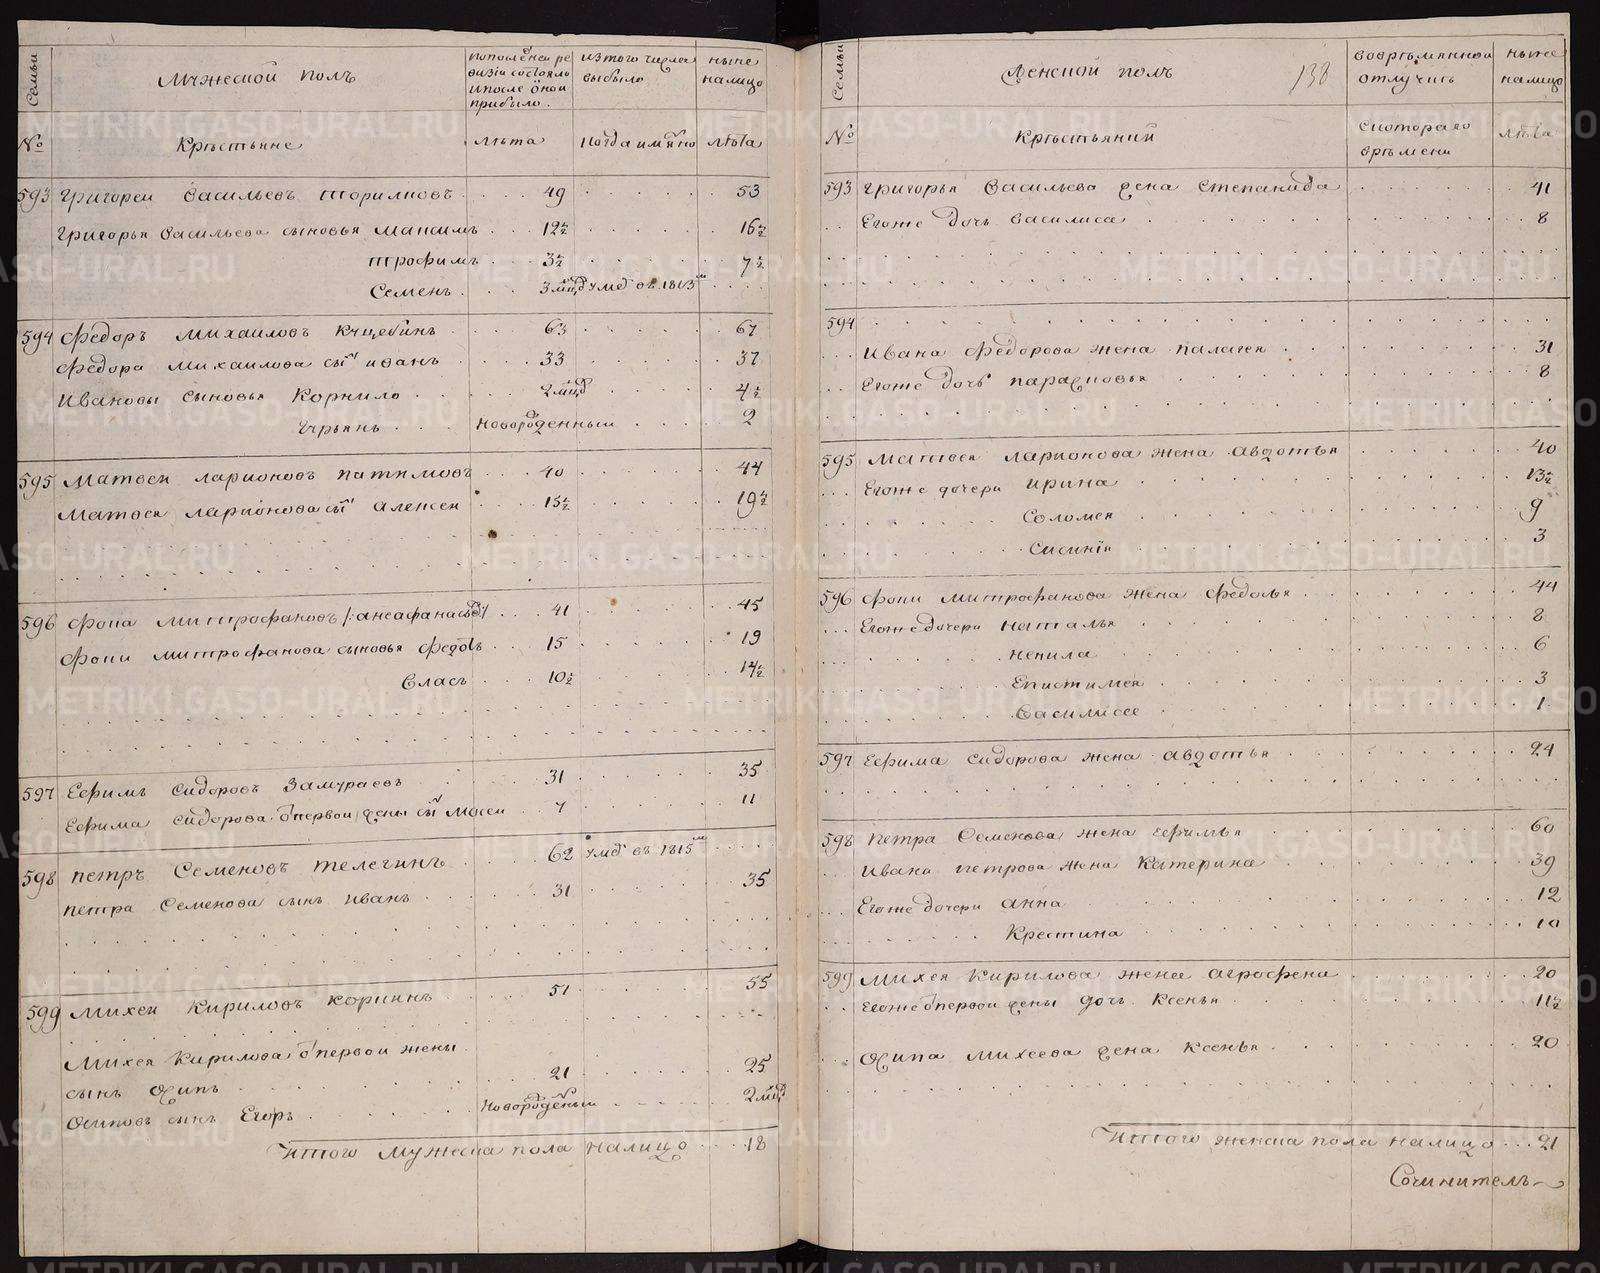 Семьи
Мужеской полъ
По последней ре
визіи состояло
и после оной
прибыло.
Изтого числа
выбыло
ныне
налицо
№
Крѣстьяне
лѣта
Когда имяно
лѣта
593 Григореи Васильевъ 49 53
Григорья Васильева сыновья Максимъ 12½ 16½
Трофимъ 3½ 7½
Семенъ 3 мцд умѣ въ 1813м
594 Федоръ Михаиловъ Кущебинъ 63 67
Федора Михаилова сыⁿ Иванъ 33 37
Ивановы сыновья Корнило 2 мцд 4½
Гурьянъ Новорожденныи 2
595 Матвеи Ларионовъ Патимовъ 40 44
Матвея Ларионова сыⁿ Алексеи 15½ 19½
596 Фока Митрофановъ /: 41 45
Фоки Митрофанова сыновья Федотъ 15 19
Власъ 10½ 14½
597 Ефимъ Сидоровъ Замураевъ 31 35
Ефима Сидорова от первои жены сыⁿ Моисеи 7 11
598 Петръ Семеновъ Телегинъ 62 умѣ въ 1815м
Петра Семенова сынъ Иванъ 31 35
599 Михеи Кириловъ Коркинъ 51 55
Михея Кирилова от первои жены
сынъ Осипъ 21 25
Осиповъ сынъ Егоръ Новорожденыи 2 мцд
Итого мужеска пола налицо 18
Семьи
Женской полъ
138
Вовремянной
отлучкѣ
ныне
налицо
№
Крѣстьянки
Скотораго
времени
лѣта
593 Григорья Васильева жена Степанида 41
Егоже дочь Василиса 8
594
Ивана Федорова жена Палагея 31
Егоже дочь Парасковья 8
595 Матвея Ларионова жена Авдотья 40
Егоже дочери Ирина 13½
Соломея 9
3
596 Фоки Митрофанова жена Федосья 44
Егоже дочери Наталья 8
Ненила 6
Епистимея 3
Василисса 1
597 Ефима Сидорова жена Авдотья 24
598 Петра Семенова жена Ефимья 60
Ивана Петрова жена Катерина 39
Егоже дочери Анна 12
Крестина 10
599 Михея Кирилова жена Агрофена 20
Егоже от первои жены дочь Ксенья 11½
Осипа Михеева жена Ксенья 20
Итого женска пола налицо 21
Сочинитель
METRIKI.GASO-URAL.RU